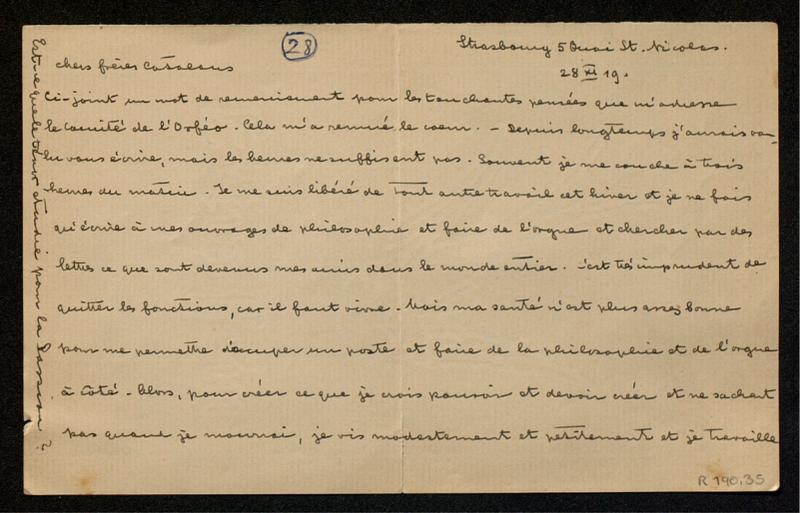 28
Strasbourg 5 Quai St. Nicolas.
28 XI 19.
chers frères Catalans
Ci-joint un mot de remerciement pour les touchantes pensées que m'adresse
le comité de l'Orféo. Cela m'a remué le coeur. - Depuis longtemps j'aurais vou-
lu vous écrire, mais les heures ne suffisent pas. Souvent je me couche à trois
heures du matin. Je me suis libéré de tout autre travail cet hiver et je ne fais
qu'écrire à mes ouvrages de philosophie et faire de l'orgue et chercher par des
lettres ce que sont devenus mes amis dans le monde entier. C'est très imprudent de
quitter les fonctions, car il faut vivre. Mais ma santé n'est plus assez bonne
pour me permettre d'occuper un poste et faire de la philosophie et de l'orgue
à côté. Alors, pour créer ce que je crois pouvoir et devoir créer et ne sachant
pas quand je mourrai, je vis modestement et petitement et je travaille
Est-ce que le tenor étudie pour la Passion?
R 190.35